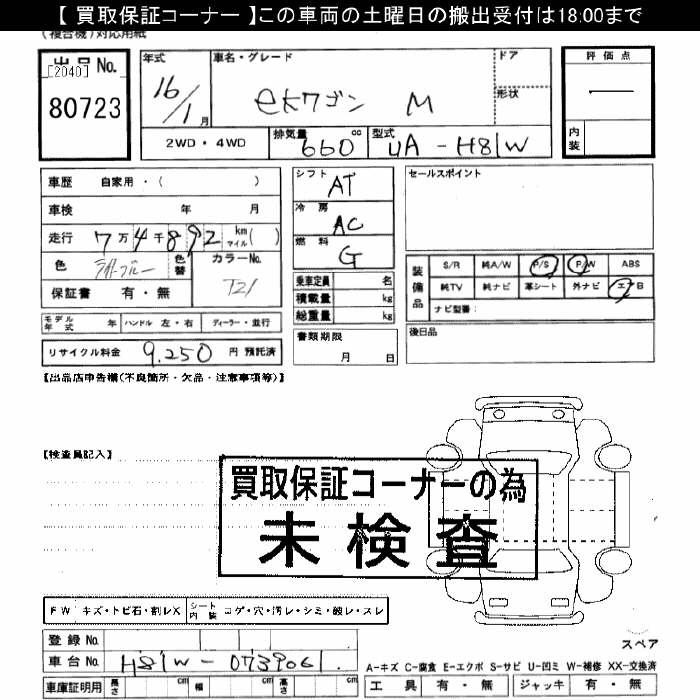 【 買取保証コーナー 】この車両の土曜日の搬出受付は18:00まで
(複合機)対応用紙
出品 No.
[2040]
80723
年式
16/1月
車名・グレード
eKワゴン M
ドア
形状
2WD・4WD
排気量 660 cc
型式 UA-H81W
評価点
内装
車歴 自家用・( )
車検 年 月
走行 7万4千892 km マイル( )
色 ライトブルー 色替
カラーNo. T21
保証書 有・無
シフト AT
冷房 AC
燃料 G
乗車定員 名
積載量 kg
総重量 kg
セールスポイント
装備品
S/R 純A/W P/S P/W ABS
純TV 純ナビ 革シート 外ナビ エアB
ナビ型番:
モデル年式 年 ハンドル 左・右 ディーラー・並行
書類期限
月 日
後日品
リサイクル料金 9,250 円 預託済
【出品店申告欄(不良箇所・欠品・注意事項等)】
【検査員記入】
買取保証コーナーの為
未検査
FW キズ・トビ石・割レX シート内装 コゲ・穴・汚レ・シミ・破レ・スレ
登録 No.
車台 No. H81W-0739061
車庫証明用 長さ cm 幅 cm 高さ cm
スペア
A-キズ C-腐食 E-エクボ S-サビ U-凹ミ W-補修 XX-交換済
工具 有・無 ジャッキ 有・無